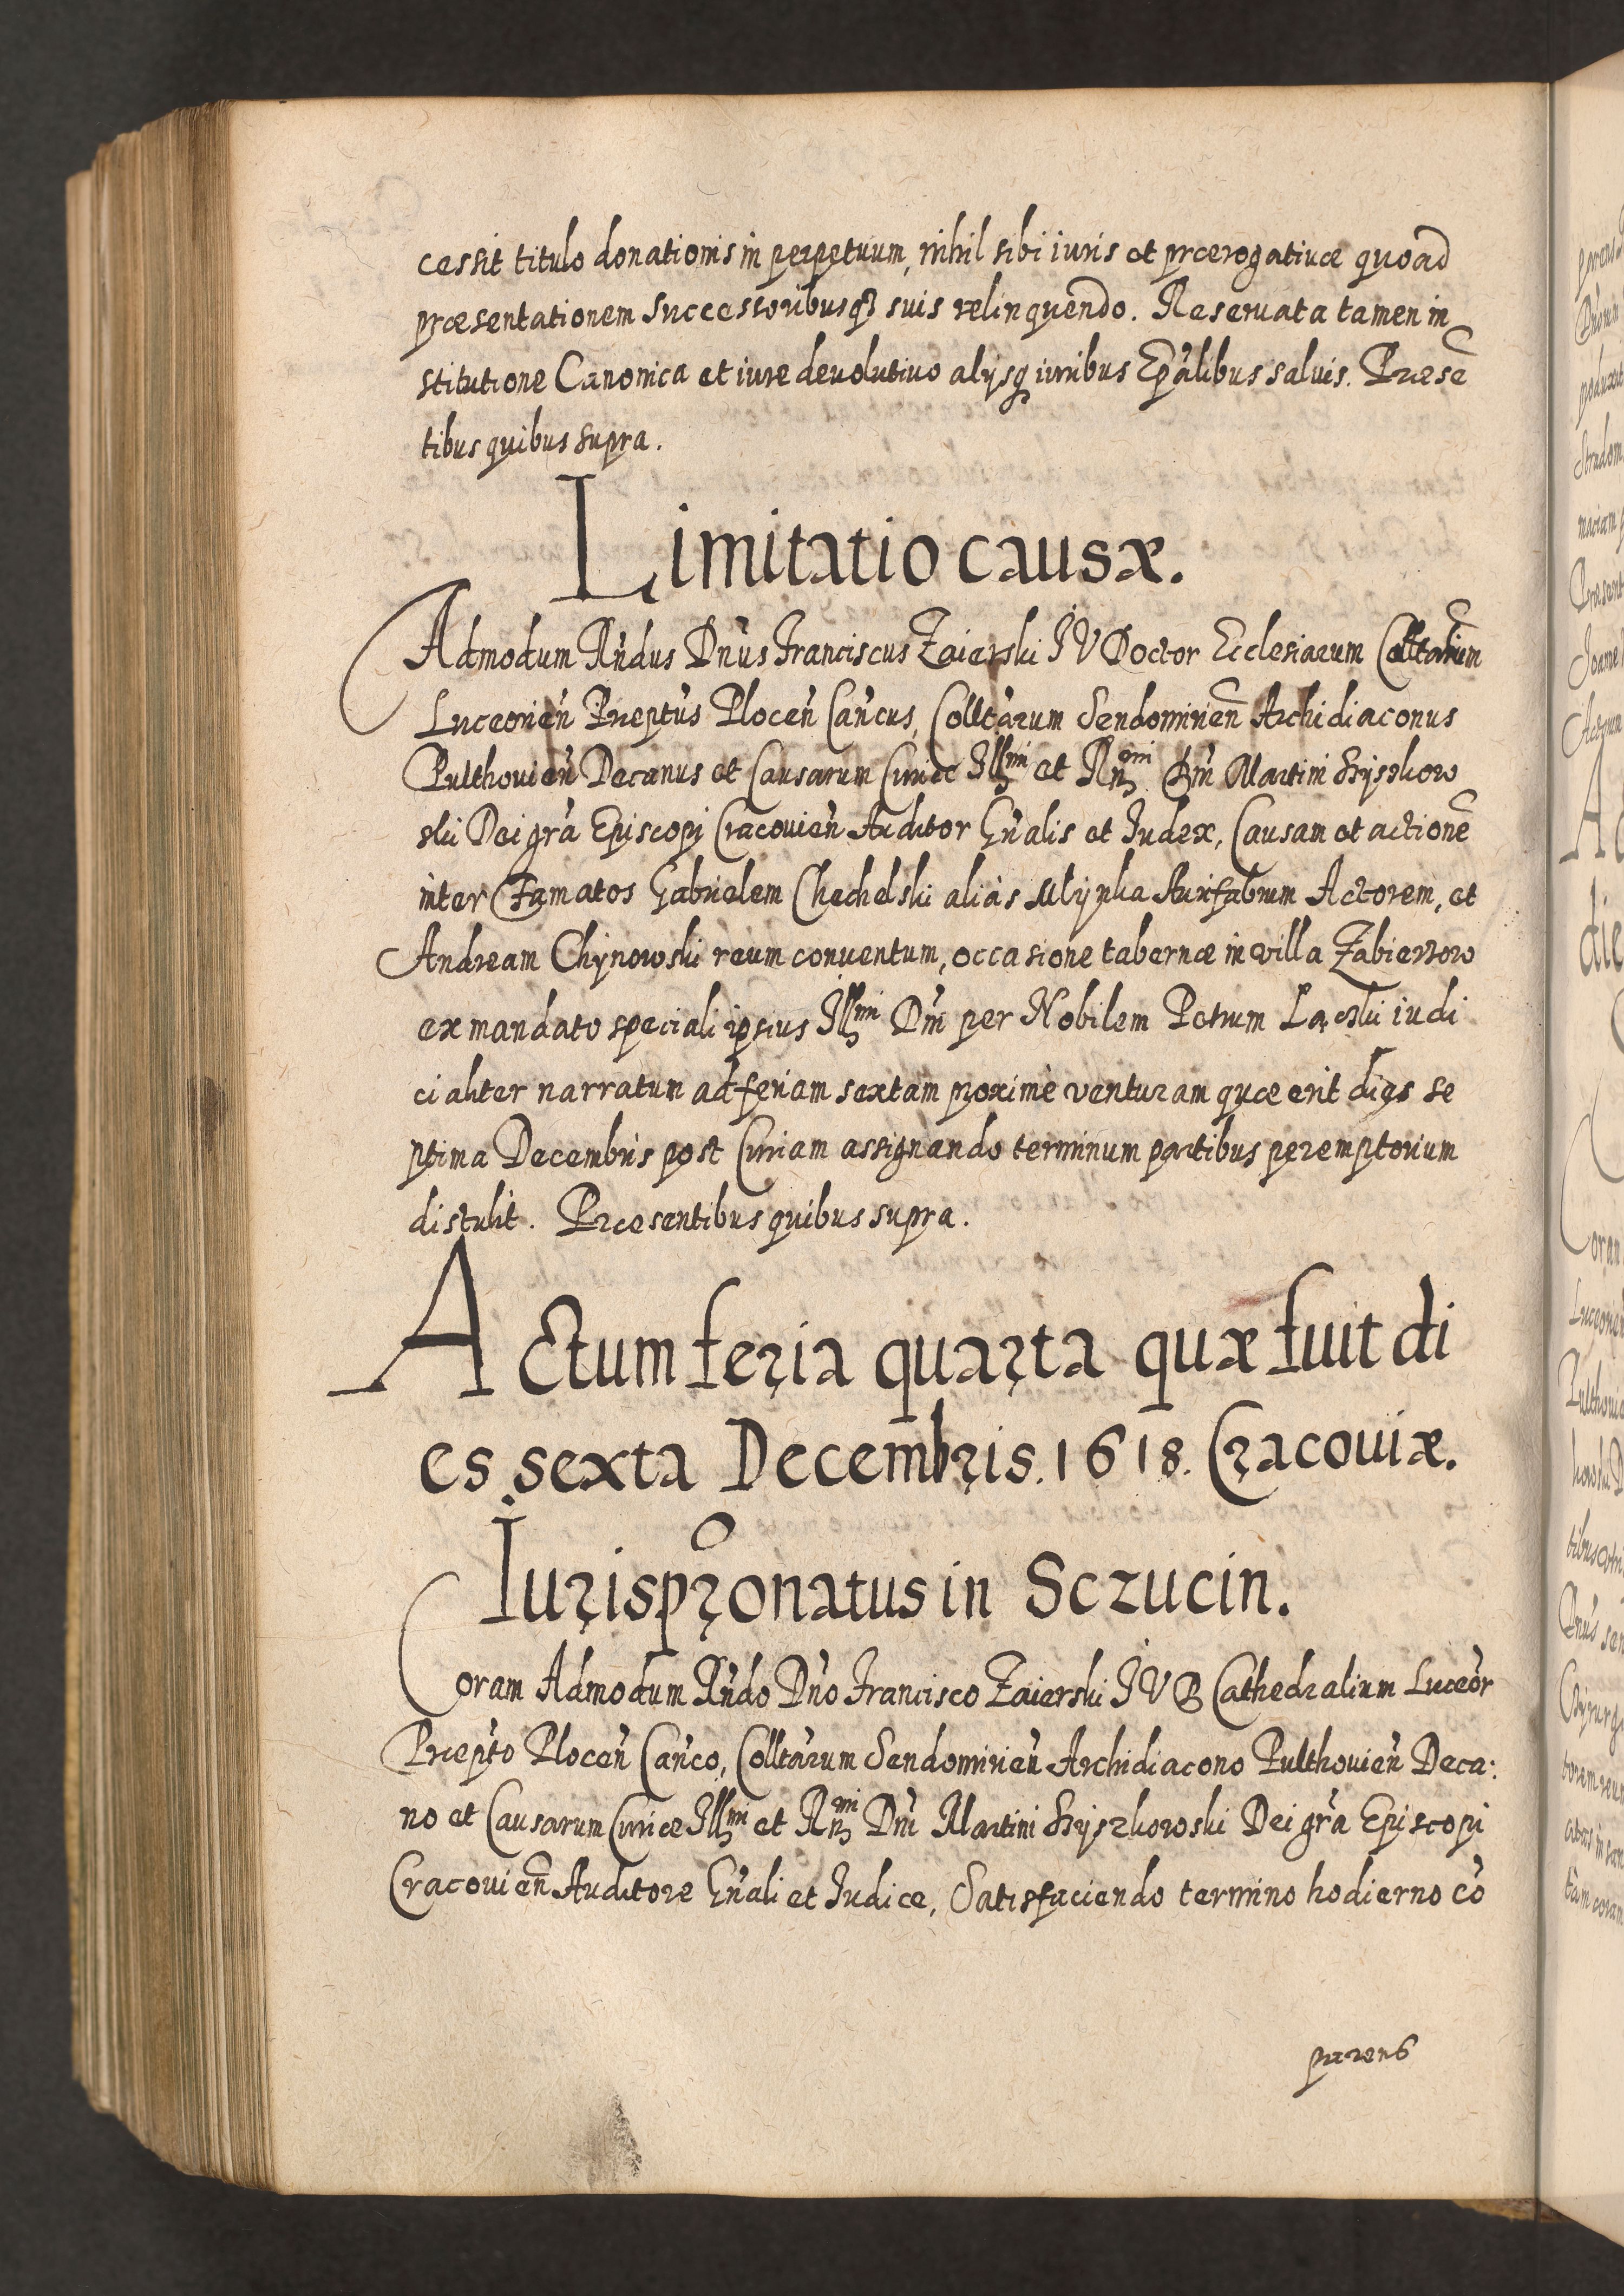 cessit titulo donationis in perpetuum, nihil sibi iuris et prærogatiuæ quoad
præsentationem Successoribusqʒ suis relinquendo. Reseruata tamen in
stitutione Canonica et iure deuolutiuo alijsqʒ iuribus Ep̃alibus saluis. Præsẽ
tibus quibus supra.
Limitatio causæ.
Admodum Rñdus Dñus Franciscus Zaierski I V Doctor Ecclesiarum
Luceorień Præptus Ploceń Cańcus, Collt̃arum Sendomirień Archidiaconus
Pulthouień Decanus et Causarum Curiæ Illmi et Rmi Dñi Martini Szyszkow
ski Dei gr̃a Episcopi Cracouień Auditor Gñalis et Iudex, Causam et actionẽ
inter Famatos Gabrielem Chechelski aliàs Młynka Aurifabrum Actorem, et
Andream Chynowski reum conuentum, occasione tabernæ in villa Zabierzow
ex mandato speciali ipsius Illmi Dñi per Nobilem Petrum Łącki iudi
cialiter narratum ad feriam sextam proximè venturam quæ erit dies se
ptima Decembris post Curiam assignando terminum partibus peremptorium
distulit. Præsentibus quibus supra.
Actum feria quarta quæ fuit di
es sexta Decembris. 1618. Cracouiæ.
Iurisprõnatus in Sczucin.
Coram Admodum Rñdo Dño Francisco Zaierski I V D Cathedralium Luceor̃
Præpto Ploceń Cańco, Collt̃arum Sendomirień Archidiacono Pulthouień Deca:
no et Causarum Curiæ Illmi et Rmi Dñi Martini Szyszkowski Dei gr̃a Episcopi
Cracouień Auditore Gñali et Iudice, Satisfaciendo termino hodierno cõ